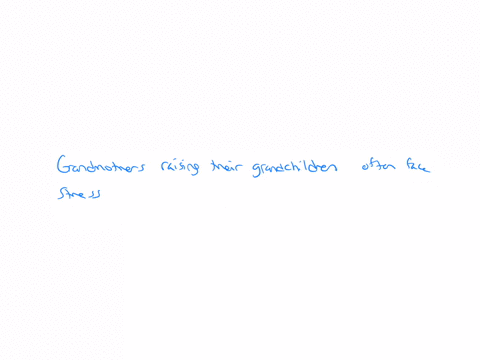 Gandmothers raising their grandchildren often face
stress